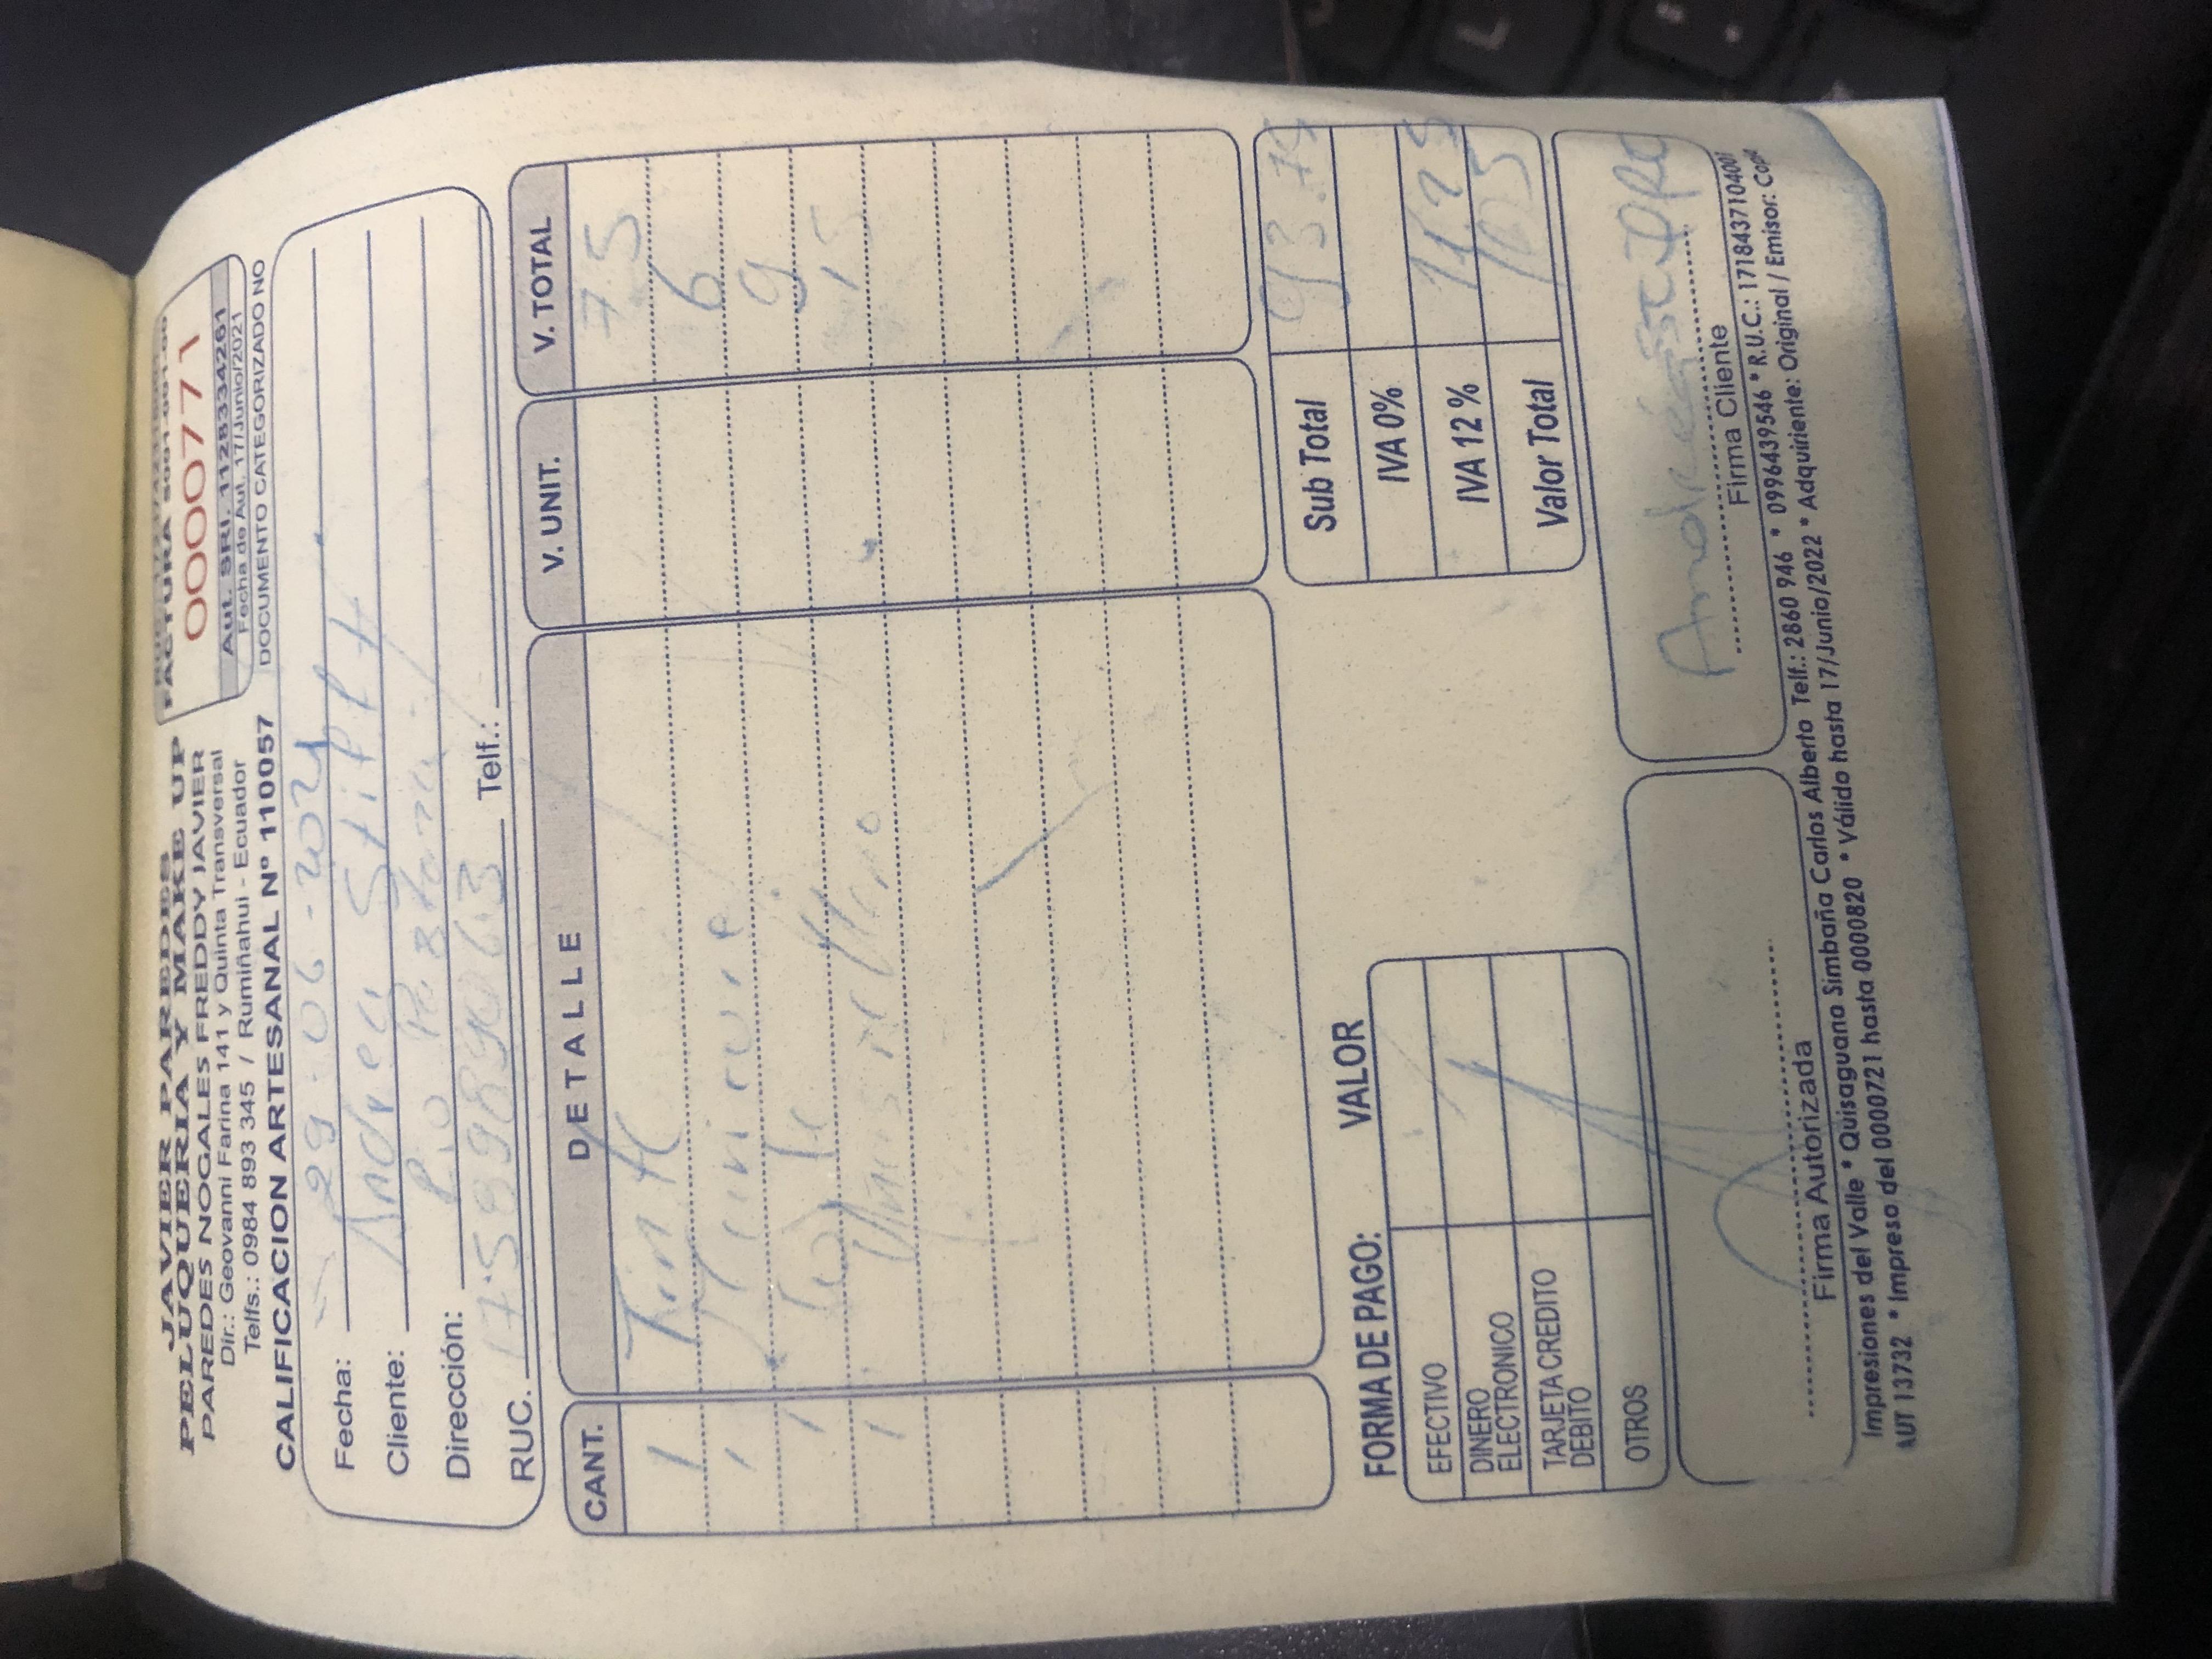 JAVIER PAREDES
PELUQUERIA Y MAKE UP
PAREDES NOGALES FREDDY JAVIER
Dir.: Geovanni Farina 141 y Quinta Transversal
Telfs.: 0984 893 345 / Rumiñahui - Ecuador
CALIFICACION ARTESANAL Nº 110057
FACTURA S001-001-00
0000771
Aut. SRI. 1128334261
Fecha de Aut. 17/Junio/2021
DOCUMENTO CATEGORIZADO NO
Fecha: 29-06-2021
Cliente: Andrea Stifft
Dirección: Rio Pastaza
RUC. Telf.:
CANT. DETALLE V. UNIT. V. TOTAL
1 Tinte 75
1 Manicure 6
1 9
1 Uñas relleno 15
Sub Total 93.75
IVA 0%
IVA 12 % 11.25
Valor Total 105
FORMA DE PAGO: VALOR
EFECTIVO
DINERO
ELECTRONICO
TARJETA CREDITO
DEBITO
OTROS
Firma Autorizada
Firma Cliente
Impresiones del Valle * Quisaguano Simbaña Carlos Alberto Telf.: 2860 946 * 0996439546 * R.U.C.: 1718437104001
AUT 13732 * Impreso del 0000721 hasta 0000820 * Válido hasta 17/Junio/2022 * Adquiriente: Original / Emisor: Copia